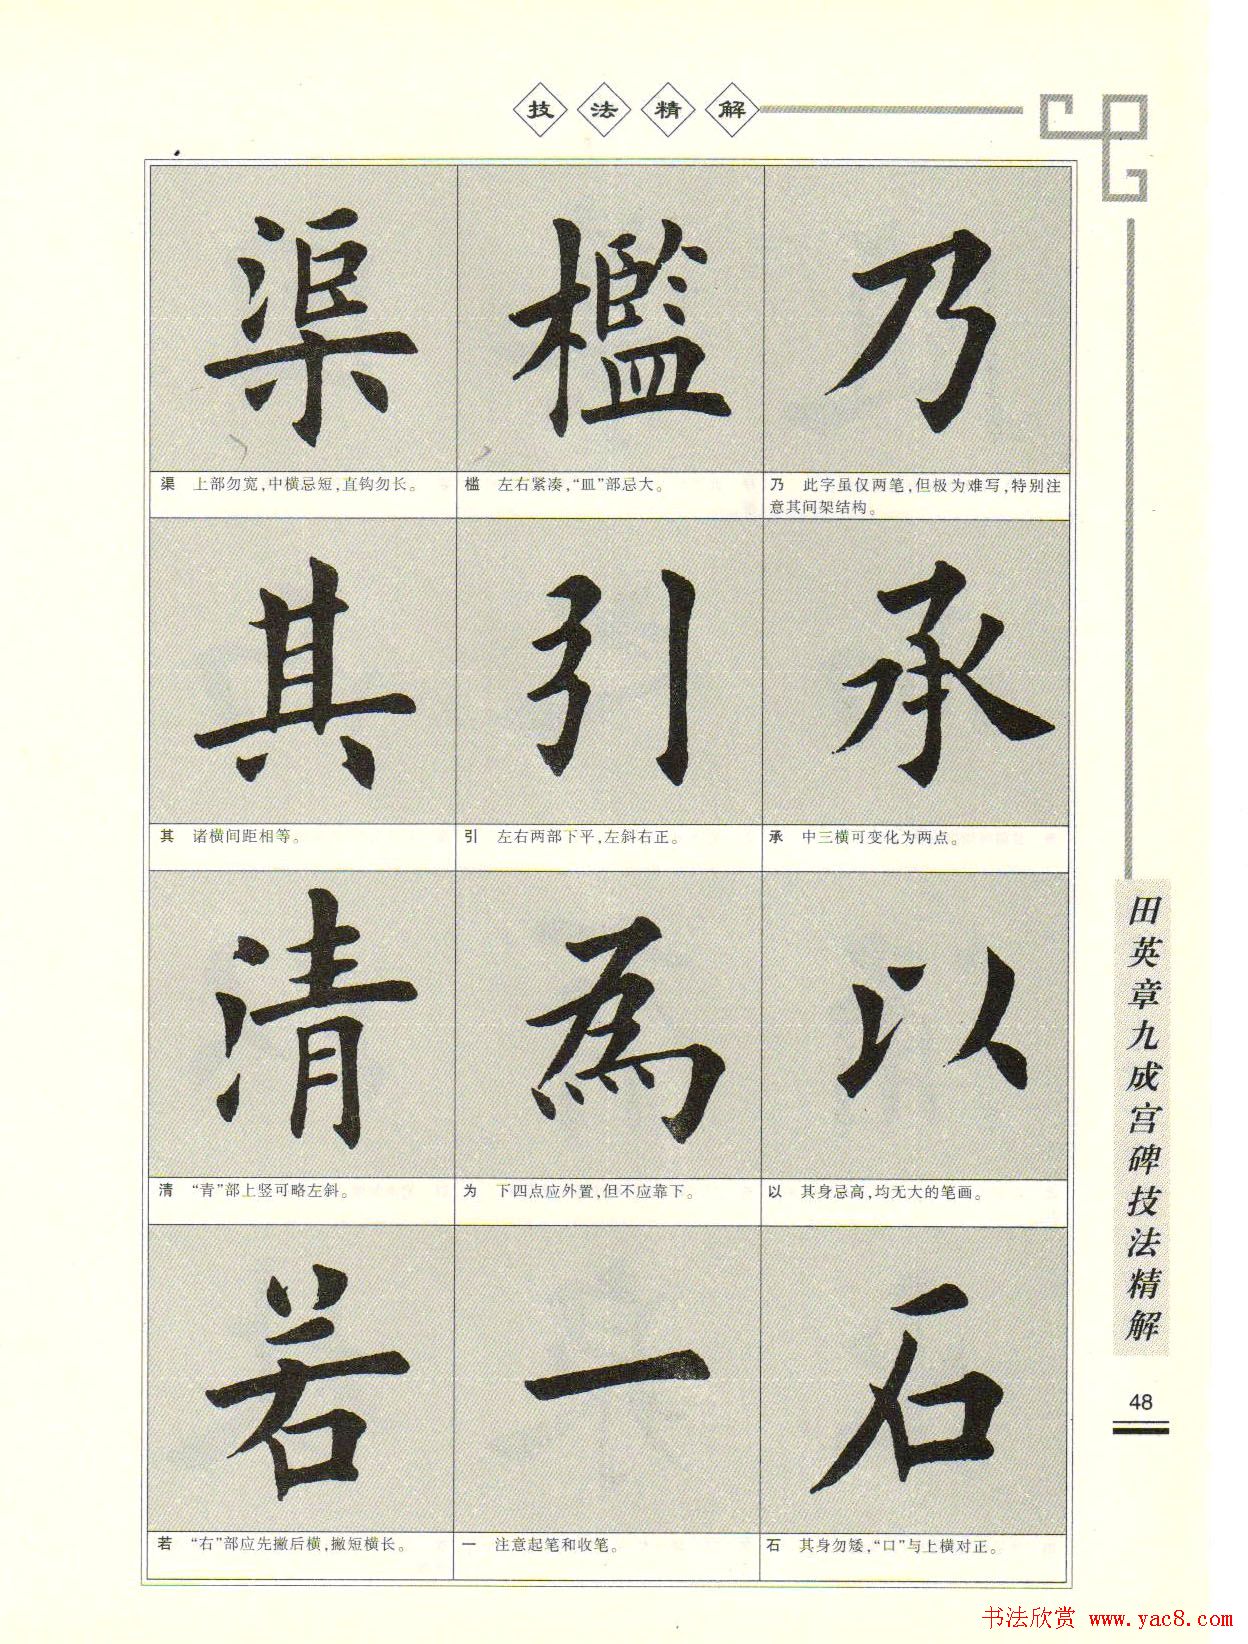 技法精解
渠 檻 乃
渠 上部勿宽,中横忌短,直钩勿长。
槛 左右紧凑,“皿”部忌大。
乃 此字虽仅两笔,但极为难写,特别注
意其间架结构。
其 引 承
其 诸横间距相等。
引 左右两部下平,左斜右正。
承 中三横可变化为两点。
清 為 以
清 “青”部上竖可略左斜。
为 下四点应外置,但不应靠下。
以 其身忌高,均无大的笔画。
若 一 石
若 “右”部应先撇后横,撇短横长。
一 注意起笔和收笔。
石 其身勿矮,“口”与上横对正。
田英章九成宫碑技法精解
48
书法欣赏 www.yac8.com